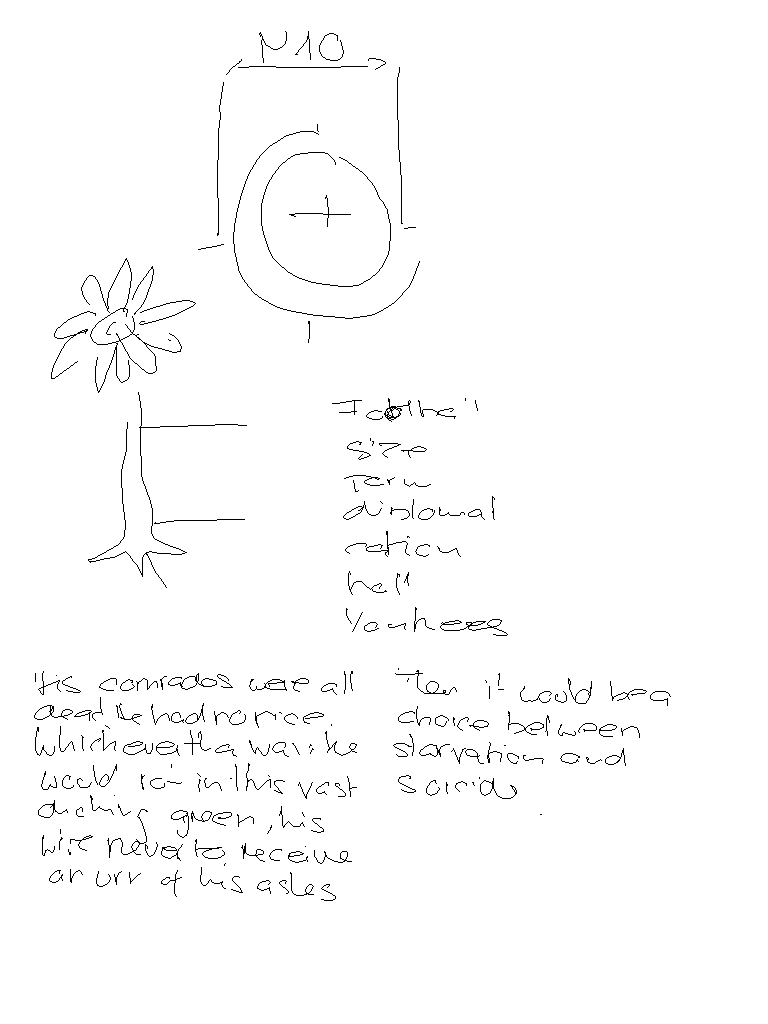 M10
Football
size
Term
diplomat
ration
hall
Yankees
His comrades were all
dead. He had no rice.
Whichever the way, he
would rot in this vast
dripping green, his
wife never to receive
an urn of his ashes
Then it would be a
choice between
starvation and
suicide.